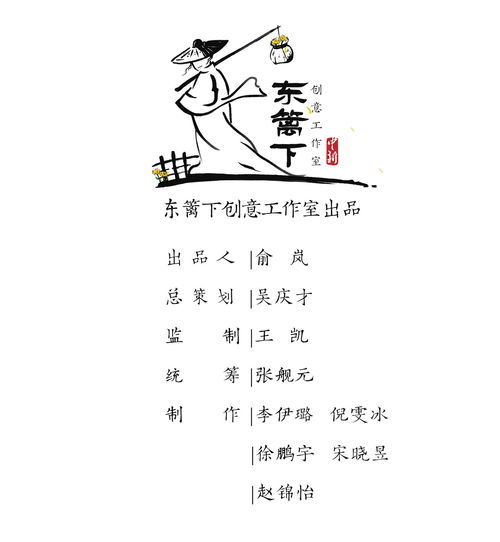 东篱下
创意工作室
中新
东篱下创意工作室出品
出品人|俞 岚
总策划|吴庆才
监 制|王 凯
统 筹|张舰元
制 作|李伊璐 倪雯冰
|徐鹏宇 宋晓昱
|赵锦怡